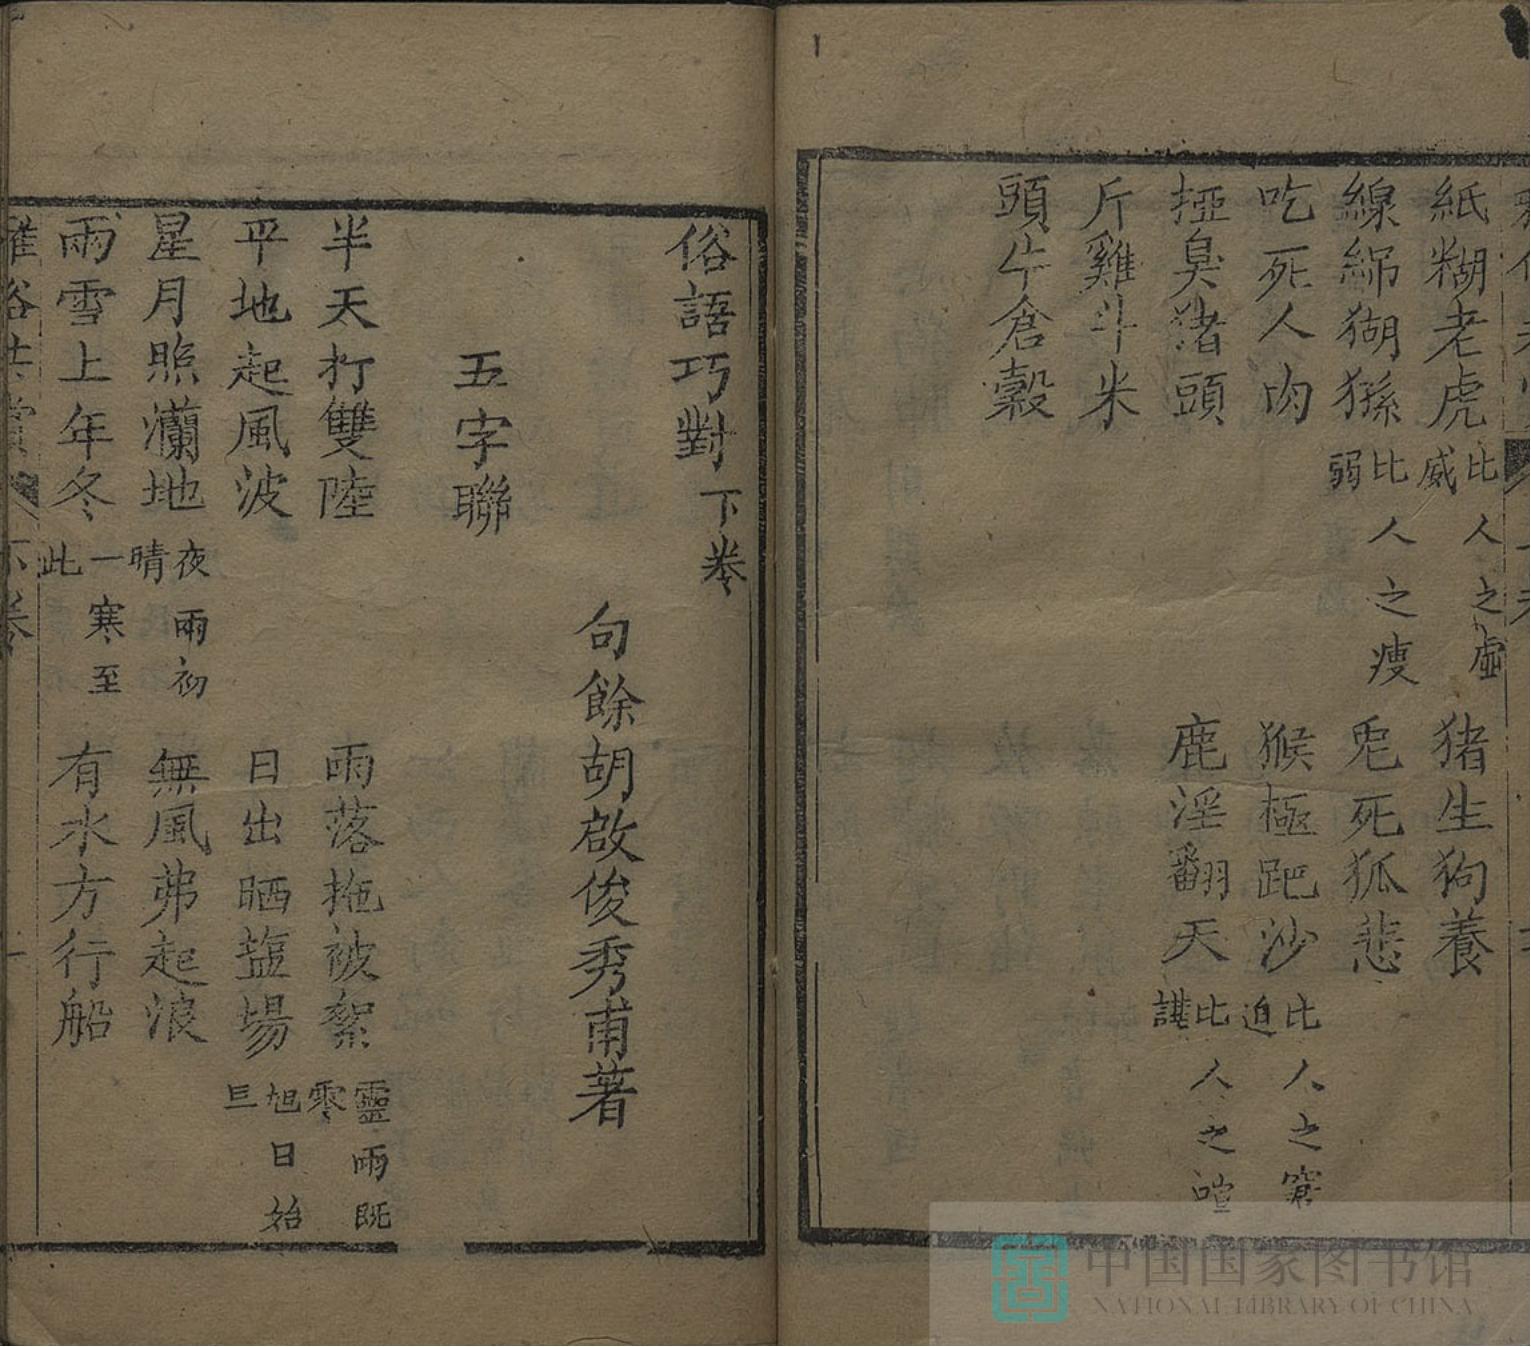 紙糊老虎 比人之虛威 猪生狗養
線綿猢猻 比人之瘦弱 兎死狐悲
吃死人肉 猴極跁沙 比人之窘迫
挜臭猪頭 鹿淫翻天 比人之諠譁
斤雞斗米
頭牛倉穀
俗語巧對 下卷
句餘胡啟俊秀甫著
五字聯
半天打雙陸 雨落拖被絮 靈雨既零
平地起風波 日出晒盐場 旭日始旦
星月照瀾地 夜雨初晴 無風弗起浪
雨雪上年冬 一寒至此 有水方行船
中国国家图书馆
NATIONAL LIBRARY OF CHINA